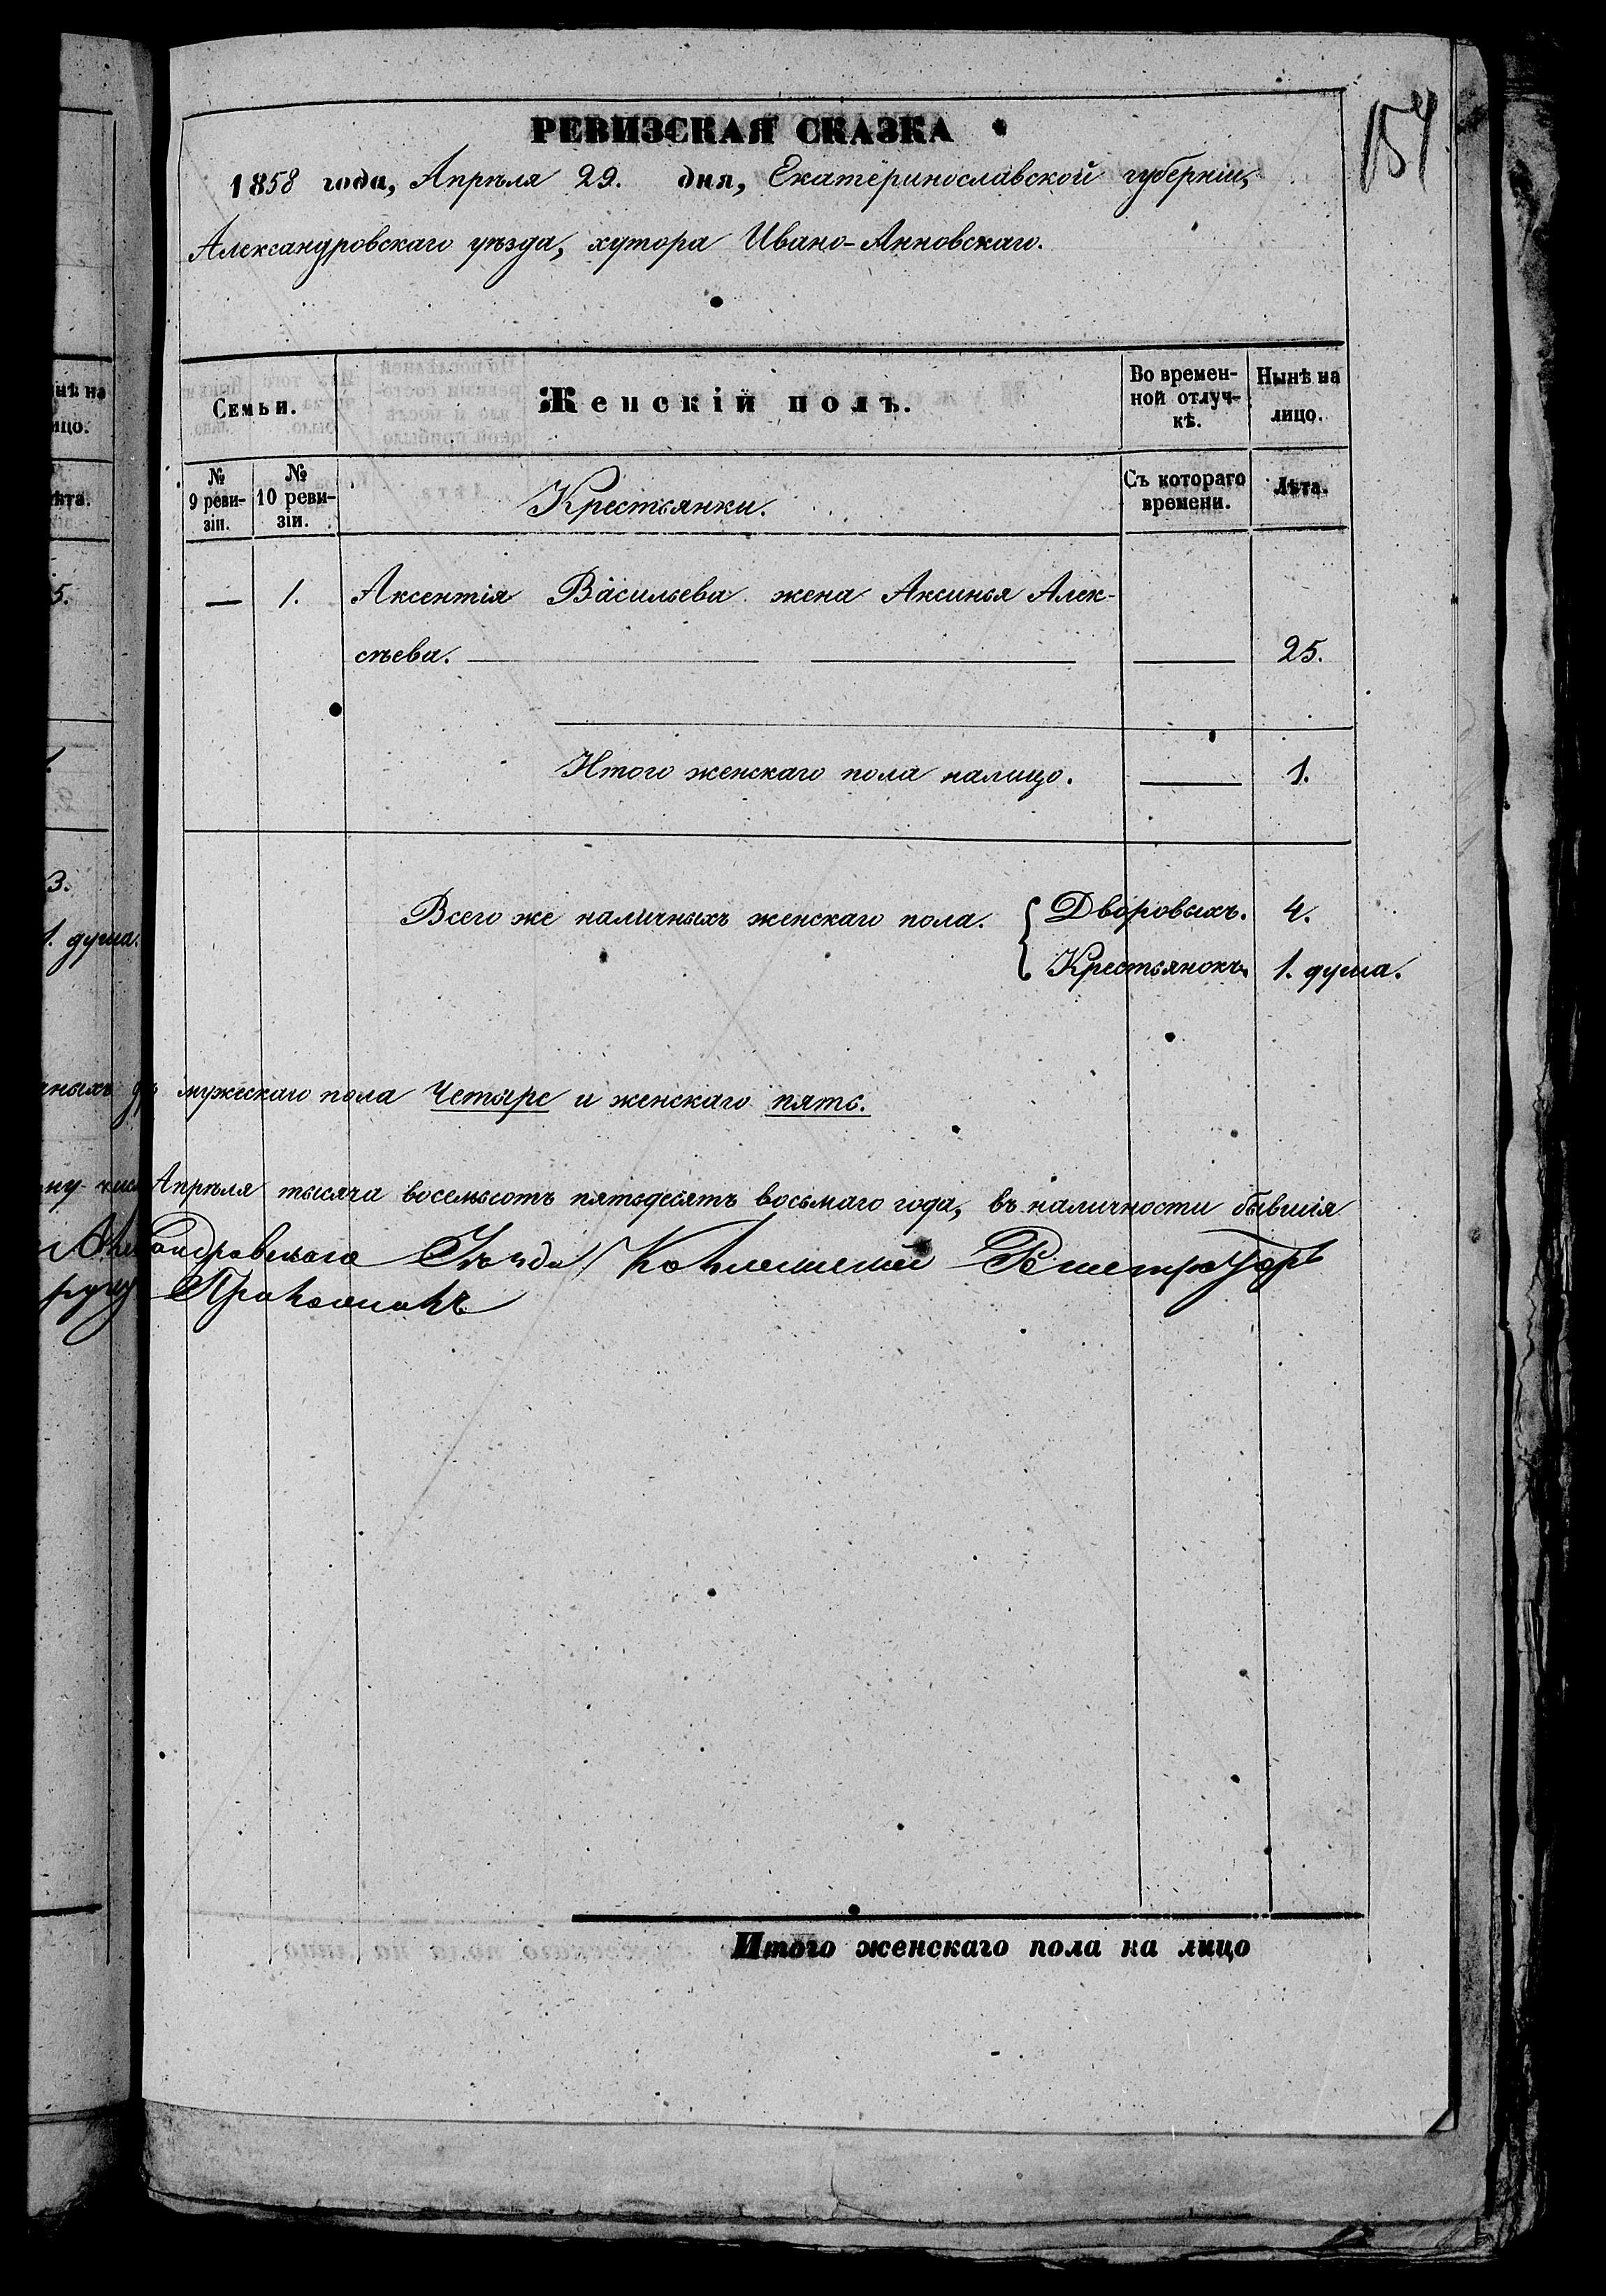 154
РЕВИЗСКАЯ СКАЗКА
1858 года, Апрѣля 29. дня, Екатеринославской губерніи,
Александровскаго уѣзда, хутора Ивано-Анновскаго.
Семьи.
Женскій полъ.
Во времен-
ной отлуч-
кѣ.
Нынѣ на
лицо.
№
9 реви-
зіи.
№
10 реви-
зіи.
Крестьянки.
Съ котораго
времени.
Лѣта.
— 1. Аксентія Васильева жена Аксинья Алек-
сѣева. — 25.
Итого женскаго пола налицо. — 1.
Всего же наличныхъ женскаго пола. { Дворовыхъ. 4.
Крестьянокъ. 1. душа.
мужескаго пола четыре и женскаго пять.
Апрѣля тысяча восемьсотъ пятьдесятъ восьмаго года, въ наличности бывшія
Уѣзда
Итого женскаго пола на лицо